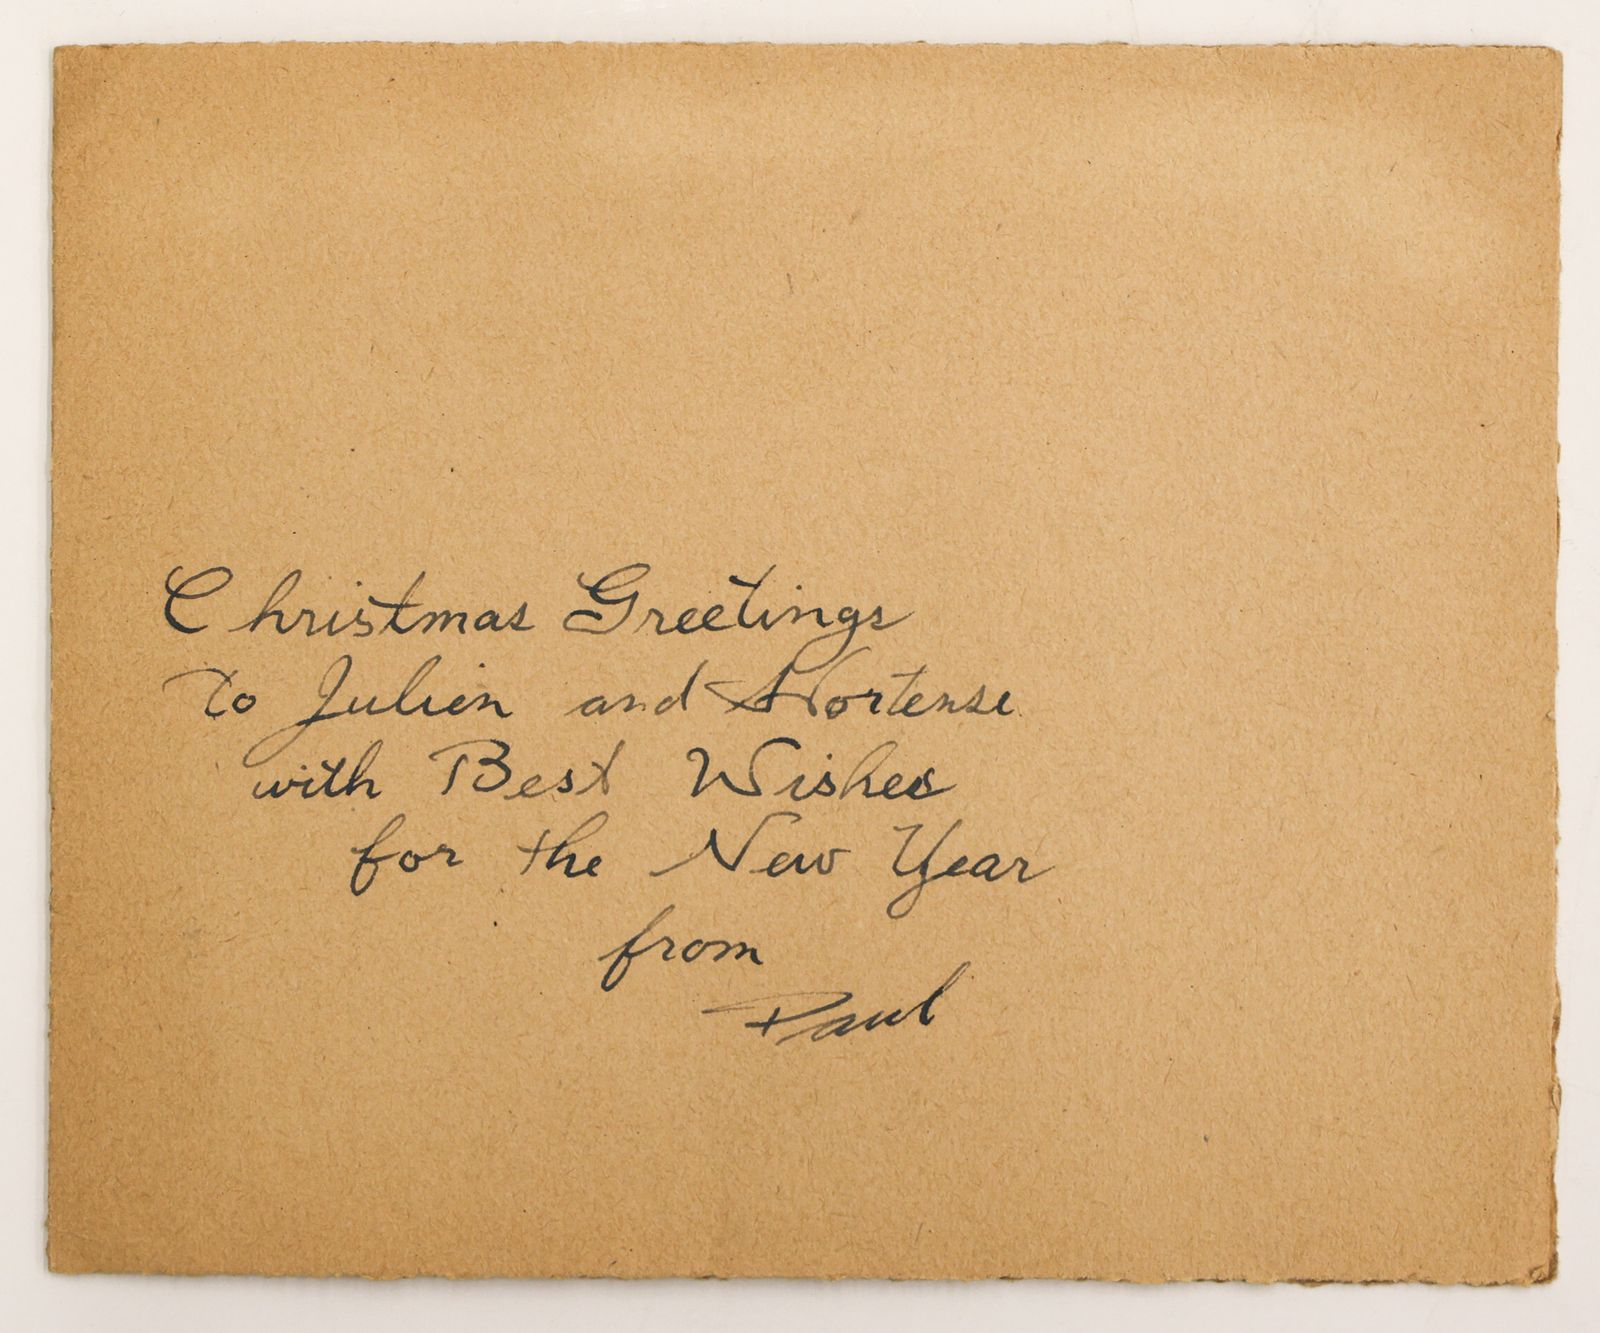 Christmas Greetings
To Julien and Hortense
with Best Wishes
for the New Year
from
Paul